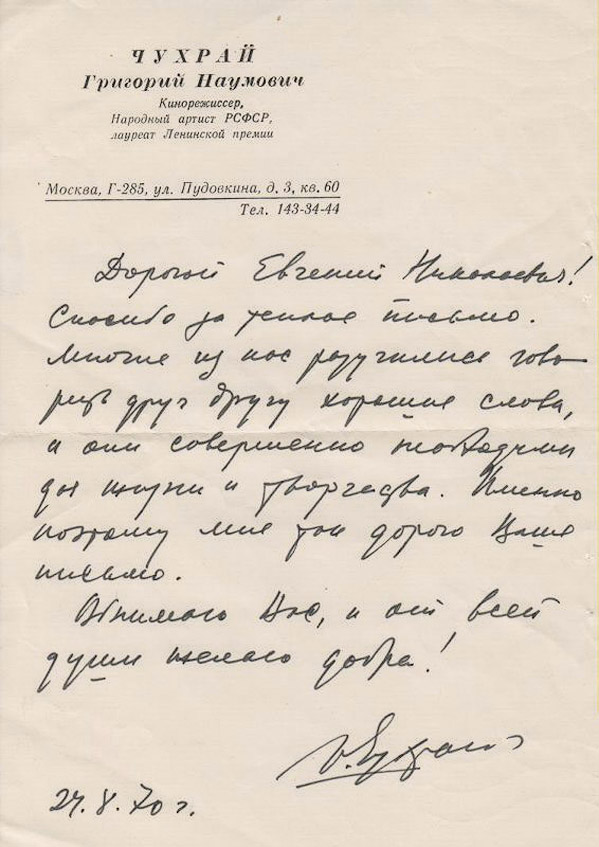 ЧУХРАЙ
Григорий Наумович
Кинорежиссер,
Народный артист РСФСР,
лауреат Ленинской премии
Москва, Г-285, ул. Пудовкина, д. 3, кв. 60
Тел. 143-34-44
Дорогой Евгений Николаевич!
Спасибо за теплое письмо.
Многие из нас разучились гово-
рить друг другу хорошие слова,
а они совершенно необходимы
для жизни и творчества. Именно
поэтому мне так дорого Ваше
письмо.
Обнимаю Вас, и от всей
души желаю добра!
Г. Чухрай
24.8.70 г.